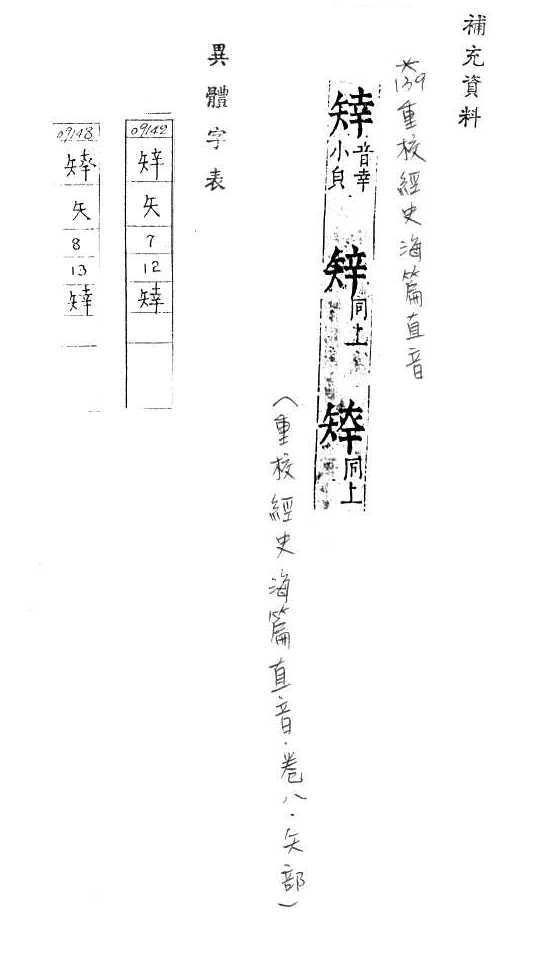 補充資料
*139重校經史海篇直音
音幸
小皃
同上
同上
（重校經史海篇直音．卷八．矢部）
異體字表
矢
7
12
09148
矢
8
13